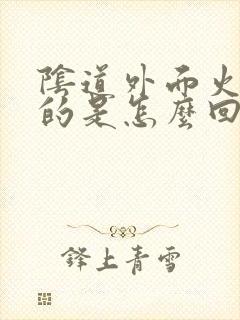 陰道外面火
的是怎麼回
鋒上青雪